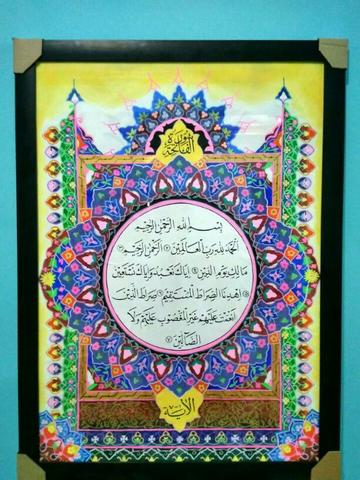 سورة
الفاتحة
بسم الله الرحمن الرحيم
الحمد لله رب العالمين ٢ الرحمن الرحيم ٣
مالك يوم الدين ٤ إياك نعبد وإياك نستعين
٥ اهدنا الصراط المستقيم ٦ صراط الذين
أنعمت عليهم غير المغضوب عليهم ولا
الضالين ٧
الآية ٧